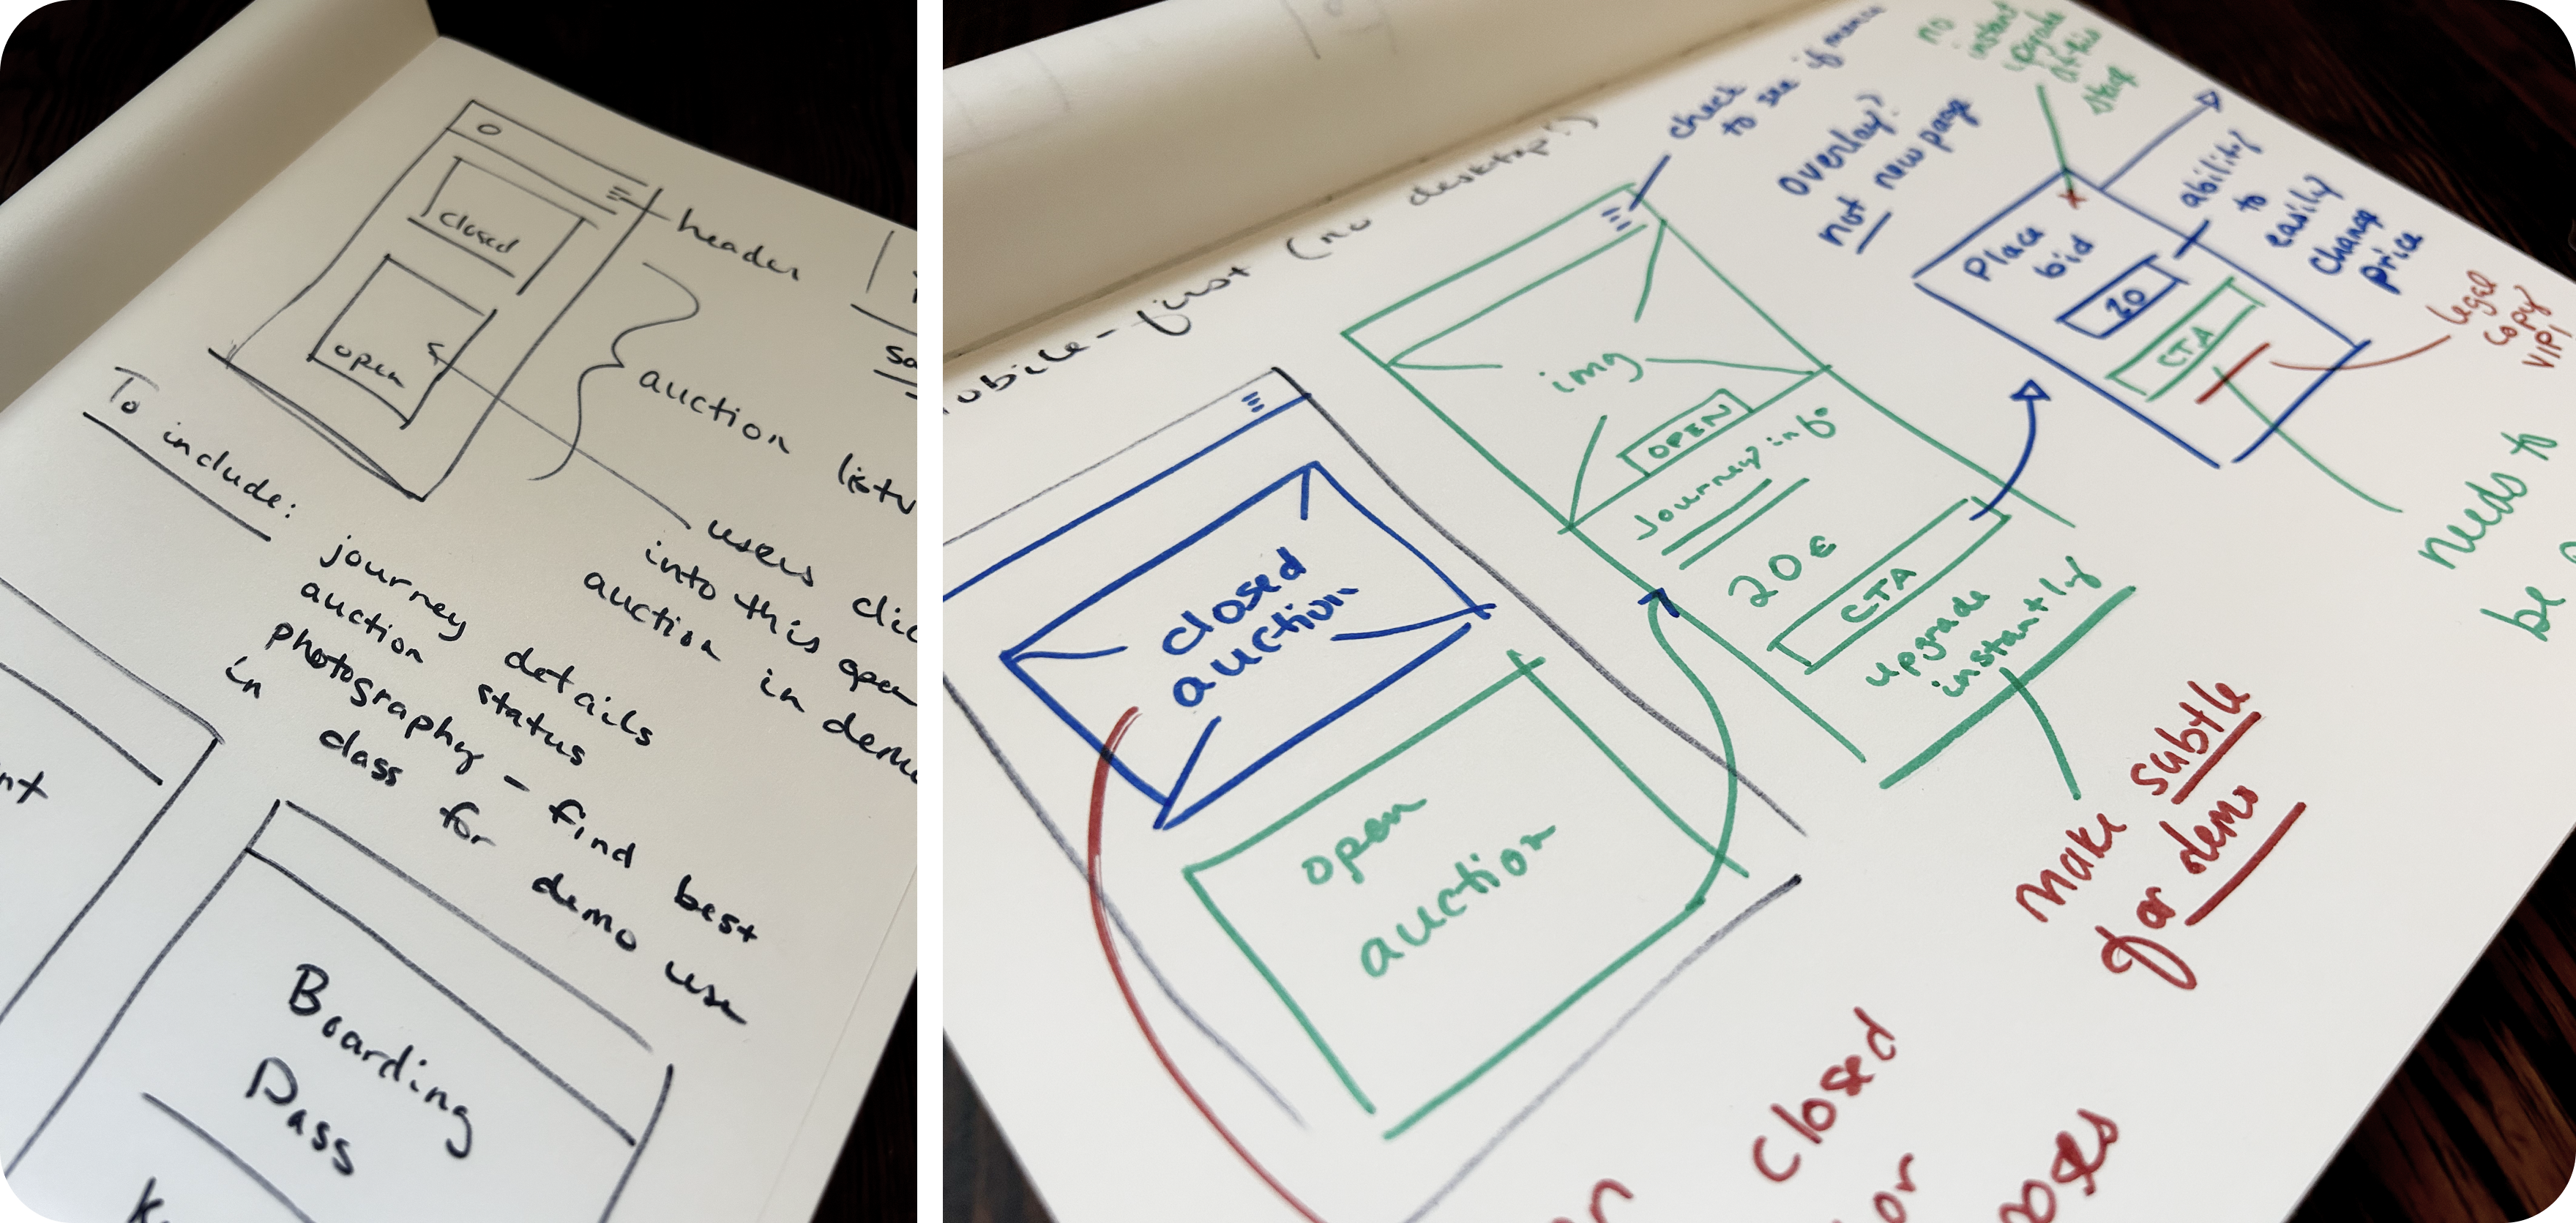 closed
open
header
auction
To include:
users
into this open
auction in demo
journey details
auction status
photography - find best
in class for demo use
Boarding
Pass
mobile-first (no desktop!)
check
to see if
overlay?
not new page
no
instant
upgrade
at this
step
ability
to
easily
change
price
Place
bid
20
CTA
legal
copy
VIP!
needs to
be
img
OPEN
Journey info
20€
CTA
upgrade
instantly
make subtle
for demo
closed
auction
open
auction
closed